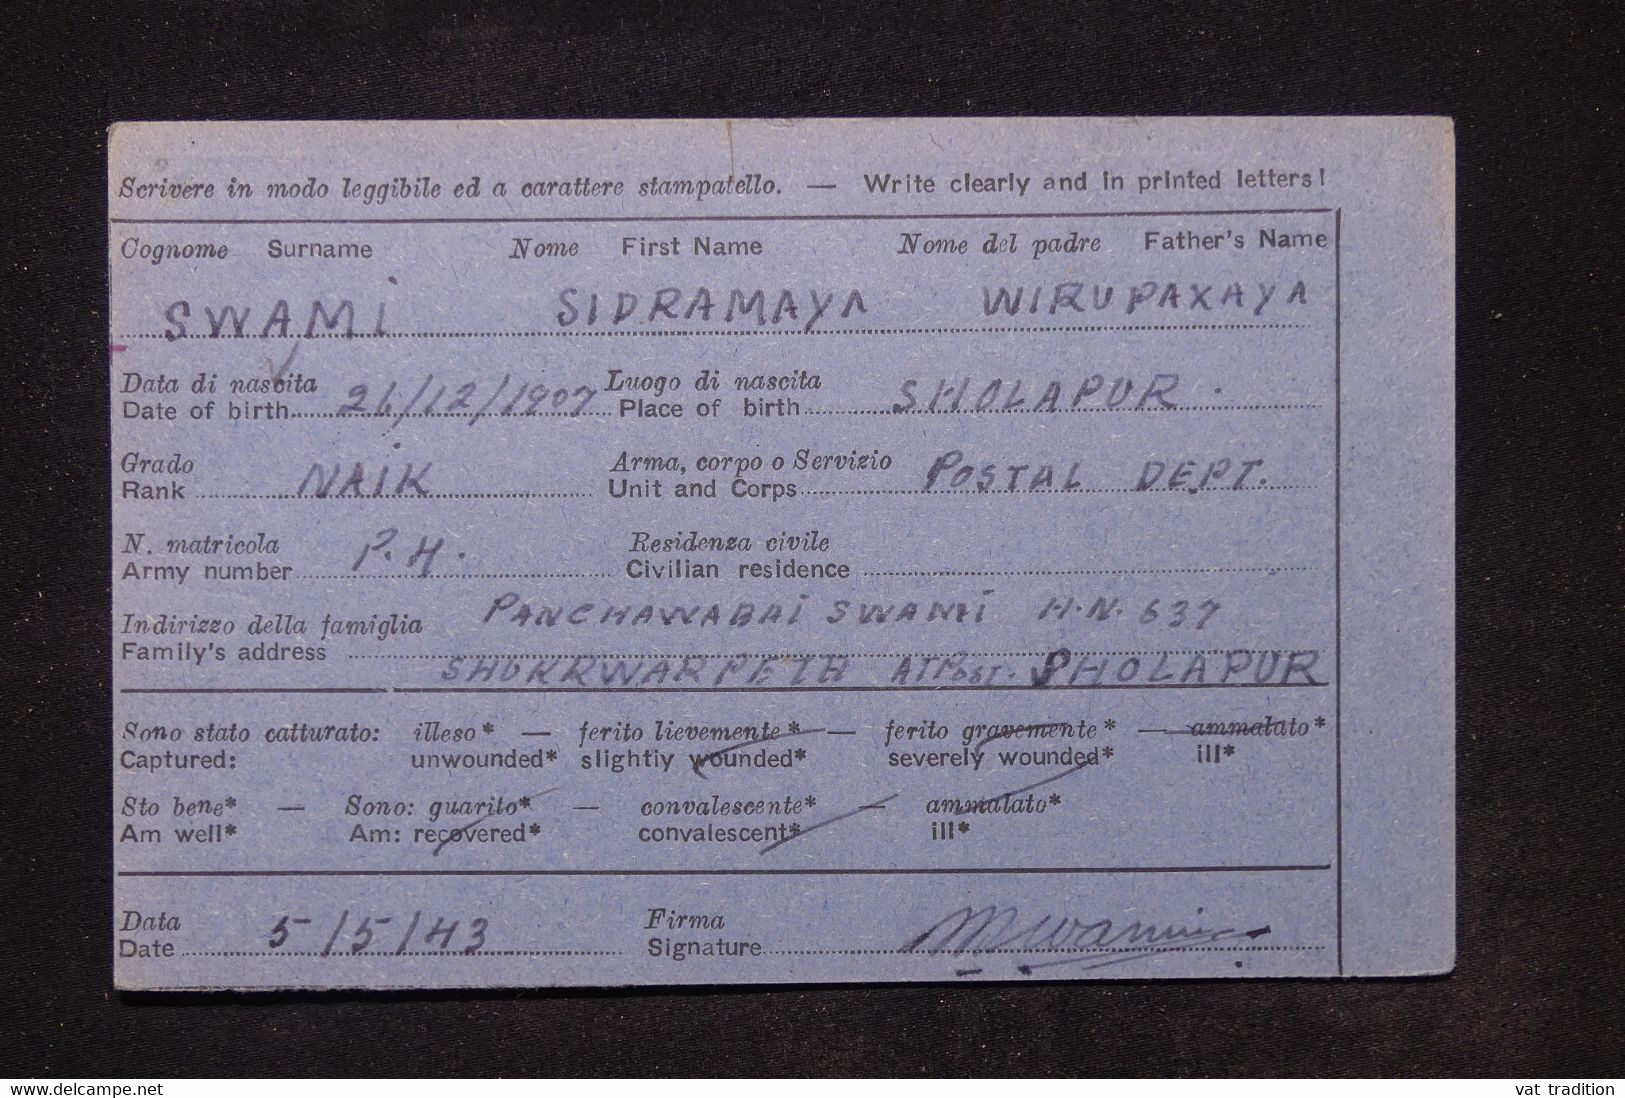 Scrivere in modo leggibile ed a carattere stampatello. — Write clearly and in printed letters!
Cognome Surname Nome First Name Nome del padre Father's Name
SWAMi SIDRAMAYA WIRUPAXAYA
Data di nascita Luogo di nascita
Date of birth 21/12/1907 Place of birth SHOLAPUR.
Grado NAiK Arma, corpo o Servizio POSTAL DEPT.
Rank Unit and Corps
N. matricola P.H. Residenza civile
Army number Civilian residence
Indirizzo della famiglia PANCHAWABAi SWAMi H.N. 637
Family's address SHUKRWARPETH AT POST. SHOLAPUR
Sono stato catturato: illeso* — ferito lievemente* — ferito gravemente* — ammalato*
Captured: unwounded* slightly wounded* severely wounded* ill*
Sto bene* — Sono: guarito* — convalescente* — ammalato*
Am well* Am: recovered* convalescent* ill*
Data Firma
Date 5/5/43 Signature
delcampe.net
vat tradition